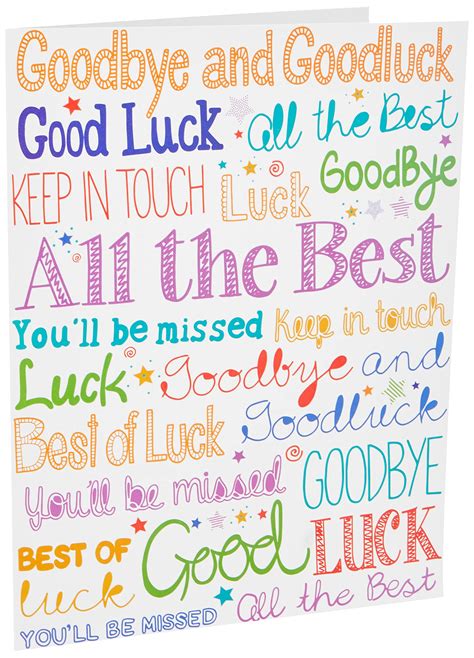 Goodbye and Goodluck
Good Luck all the Best
KEEP IN TOUCH Luck GoodBye
All the Best
You'll be missed Keep in touch
Luck Goodbye and
Best of Luck Goodluck
You'll be missed GOODBYE
BEST OF luck Good LUCK
YOU'LL BE MISSED all the Best